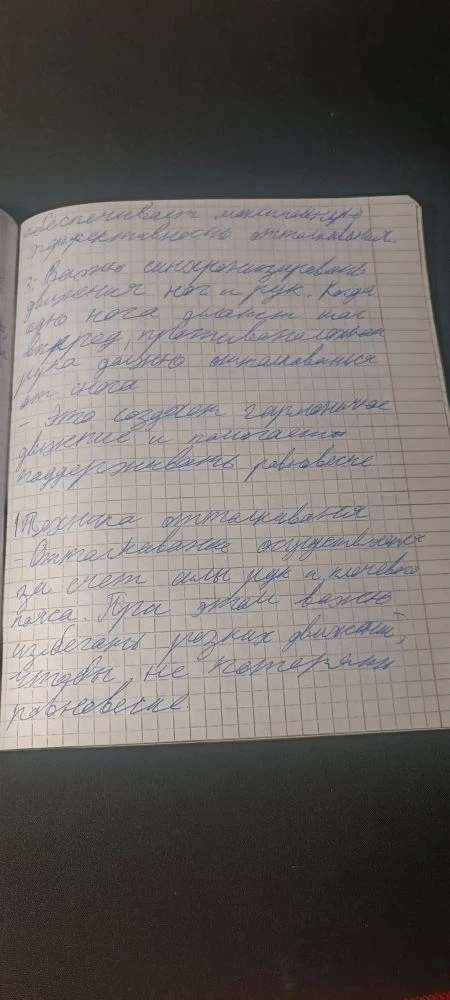 обеспечивает максимальную
эффективность отталкивания.
3- Важно синхронизировать
движения ног и рук. Когда
одно нога делает шаг
вперед, противоположная
рука должно отталкиваться
от снега
- Это создает гармоничное
движение и помогает
поддерживать равновесие
1 Техника отталкивания
- Отталкивание осуществляется
за счет силы рук и плечевого
пояса. При этом важно
избегать резких движений,
чтобы не потерять
равновесие.